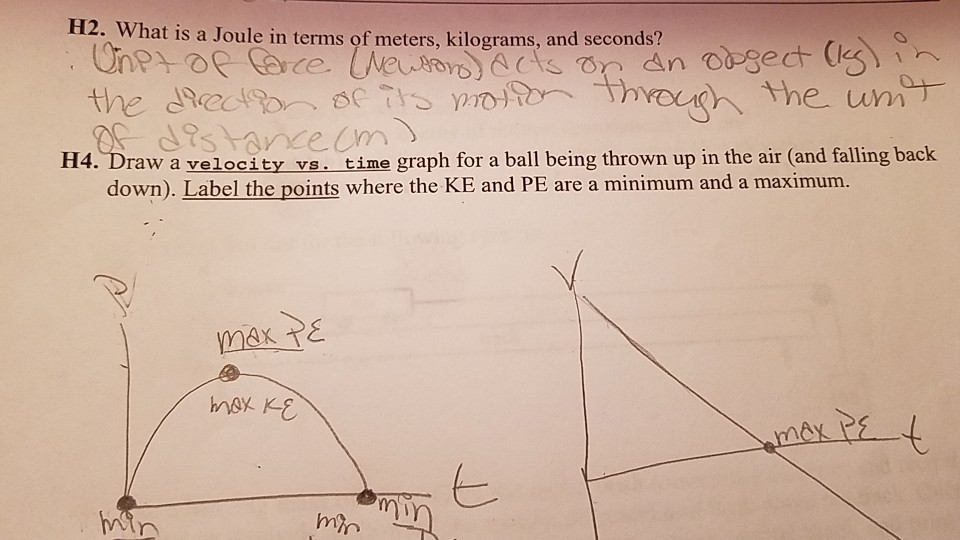 H2. What is a Joule in terms of meters, kilograms, and seconds?
Unit of force (Newtons) acts on an obgect (kg) in
the direction of its motion through the unit
of distance (m)
H4. Draw a velocity vs. time graph for a ball being thrown up in the air (and falling back
down). Label the points where the KE and PE are a minimum and a maximum.
V
max PE
max KE
max PE t
t
min
min
min